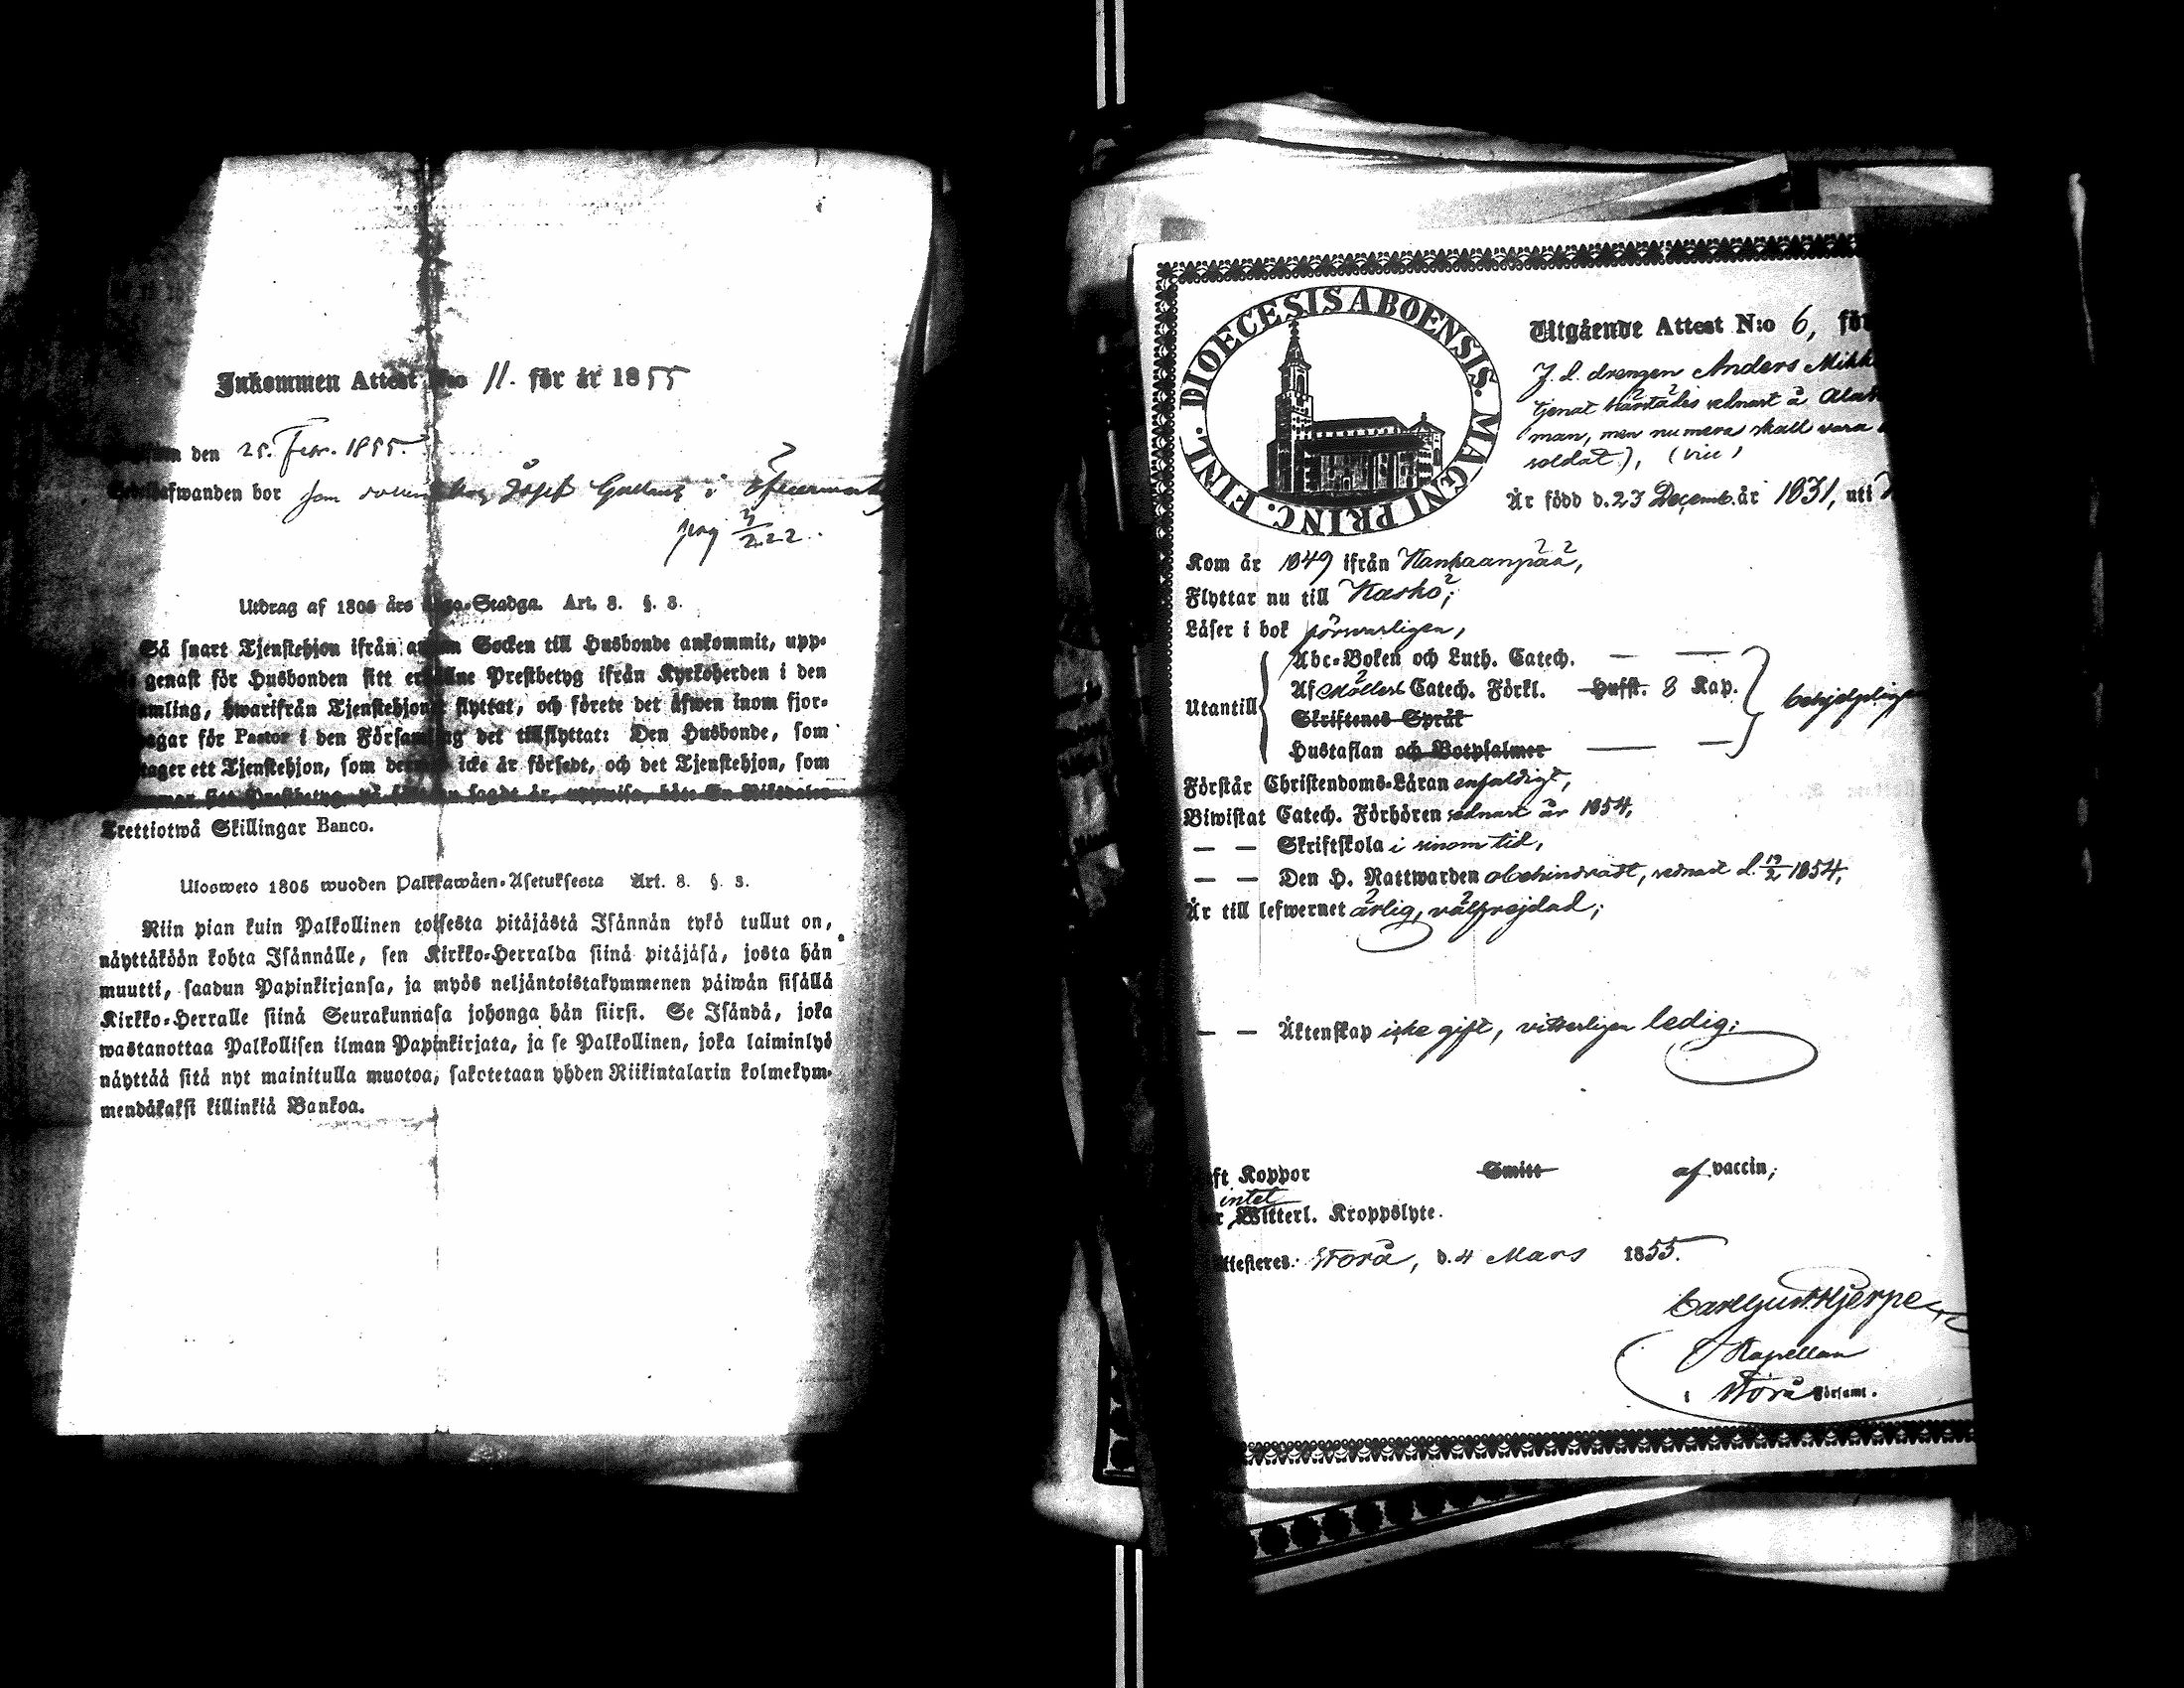 Inkommen Attest N:o 11. för år 1855
den 25. Febr. 1855.
bor som Josef i
pag 3/222.
Utdrag af 1805 års Lego-Stadga. Art. 8. §. 3.
Så snart Tjenstehjon ifrån annan Socken till Husbonde ankommit, upp-
genast för Husbonden sitt erhållne Prestbetyg ifrån Kyrkoherden i den
hwarifrån Tjenstehjonet flyttat, och förete det äfwen inom fjor-
för Pastor i den Församling det tillflyttat: Den Husbonde, som
ett Tjenstehjon, som dermed icke är försedt, och det Tjenstehjon, som
Prestbetyg på sagdt år, uppwisa, böte En Riksdaler
Trettiotwå Skillingar Banco.
Ulosweto 1805 wuoden Palkkawäen-Asetuksesta Art. 8. §. 3.
Niin pian kuin Palkollinen toisesta pitäjästä Isännän tykö tullut on,
näyttäköön kohta Isännälle, sen Kirkko-Herralda siinä pitäjäsä, josta hän
muutti, saadun Papinkirjansa, ja myös neljäntoistakymmenen päiwän sisällä
Kirkko-Herralle siinä Seurakunnasa johonga hän siirsi. Se Isändä, joka
wastanottaa Palkollisen ilman Papinkirjata, ja se Palkollinen, joka laiminlyö
näyttää sitä nyt mainitulla muotoa, sakotetaan yhden Riikintalarin kolmekym-
mendäkaksi killinkiä Bankoa.
DIOECESIS ABOENSIS. MAGNI PRINC. FINL.
Utgående Attest N:o 6, för
F. d. drengen Anders Mikk
tjenat härstädes sednast å
man, men numera skall vara
soldat), (vice)
Är född d. 23 Decemb. år 1831, uti
Kom år 1849 ifrån Kankaanpää,
Flyttar nu till Kaskö;
Läser i bok försvarligen,
Utantill
Abc-Boken och Luth. Catech. — —
Af Möllers Catech. Förkl. Hufst. 8 Kap.
Skriftenes Språk
Hustaflan och Botpsalmer — —
behjelpligen
Förstår Christendoms-Läran enfaldigt,
Biwistat Catech. Förhören sednast år 1854,
— — Skriftskola i sinom tid,
— — Den H. Nattwarden obehindradt, sednast d. 19/2 1854,
Är till lefwernet ärlig, välfrejdad;
— — Äktenskap icke gift, vitterligen ledig;
Haft Koppor Smitt af vaccin;
intet
Witterl. Kroppslyte.
Attesteres: Storå, d. 4 Mars 1855.
Carl Gust. Hjerpe
Kapellan
i Storå Församl.